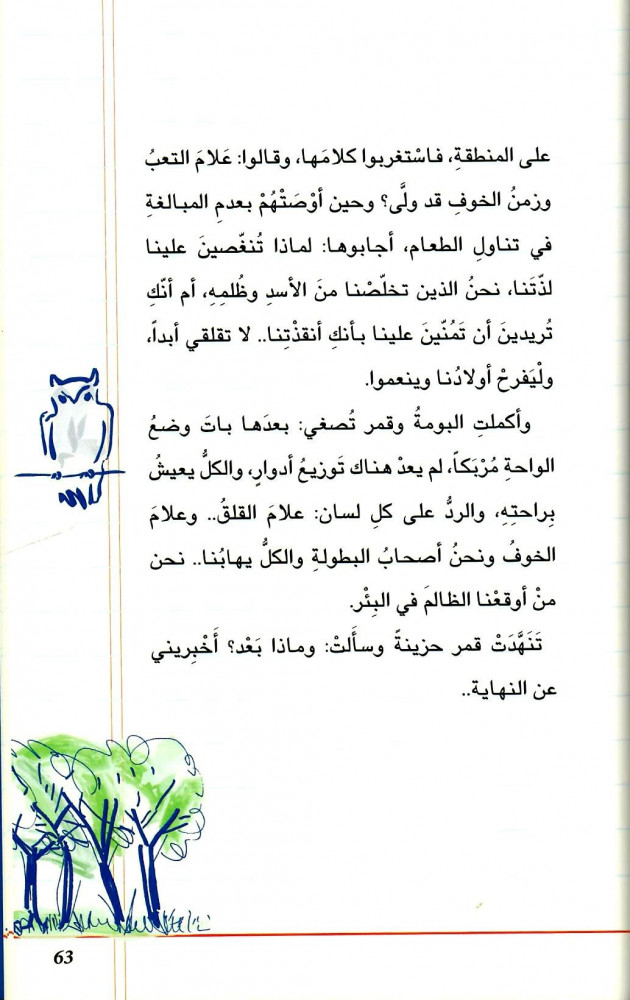 على المنطقةِ، فاسْتغربوا كلامَها، وقالوا: عَلامَ التعبُ
وزمنُ الخوفِ قد ولَّى؟ وحين أوْصَتْهُمْ بعدمِ المبالغةِ
في تناولِ الطعام، أجابوها: لماذا تُنغّصينَ علينا
لذّتَنا، نحنُ الذين تخلّصْنا منَ الأسدِ وظُلمِهِ، أم أنّكِ
تُريدينَ أن تَمُنّينَ علينا بأنكِ أنقذْتِنا.. لا تقلقي أبداً،
ولْيَفرحْ أولادُنا وينعموا.
وأكملتِ البومةُ وقمر تُصغي: بعدَها باتَ وضعُ
الواحةِ مُرْبَكاً، لم يعدْ هناك تَوزيعُ أدوارٍ، والكلُّ يعيشُ
بِراحتِهِ، والردُّ على كلِ لسان: علامَ القلقُ.. وعلامَ
الخوفُ ونحنُ أصحابُ البطولةِ والكلُّ يهابُنا.. نحن
منْ أوقعْنا الظالمَ في البِئْر.
تَنَهَّدَتْ قمر حزينةً وسأَلتْ: وماذا بَعْد؟ أَخْبِريني
عن النهاية..
63